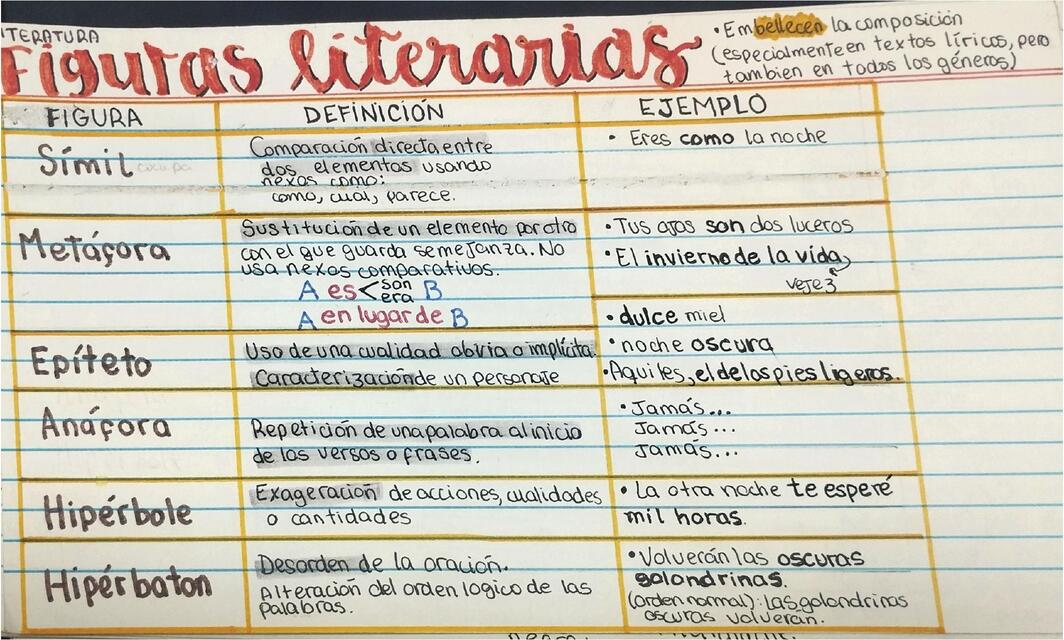 LITERATURA
Figuras literarias
• Embellecen la composición
(especialmente en textos líricos, pero
tambien en todos los géneros)
FIGURA DEFINICIÓN EJEMPLO
Símil
Comparación directa entre
dos elementos usando
nexos como:
como, cual, parece.
• Eres como la noche
Metáfora
Sustitución de un elemento por otro
con el que guarda semejanza. No
usa nexos comparativos.
A es < son B
era
A en lugar de B
• Tus ojos son dos luceros
• El invierno de la vida
vejez
Epíteto
Uso de una cualidad obvia o implícita.
Caracterización de un personaje
• dulce miel
• noche oscura
• Aquiles, el de los pies ligeros.
Anáfora
Repetición de una palabra al inicio
de los versos o frases.
• Jamás...
Jamás...
Jamás...
Hipérbole
Exageración de acciones, cualidades
o cantidades
• La otra noche te esperé
mil horas.
Hipérbaton
Desorden de la oración.
Alteración del orden logico de las
palabras.
• Volverán las oscuras
golondrinas.
(orden normal): las golondrinas
oscuras volverán.